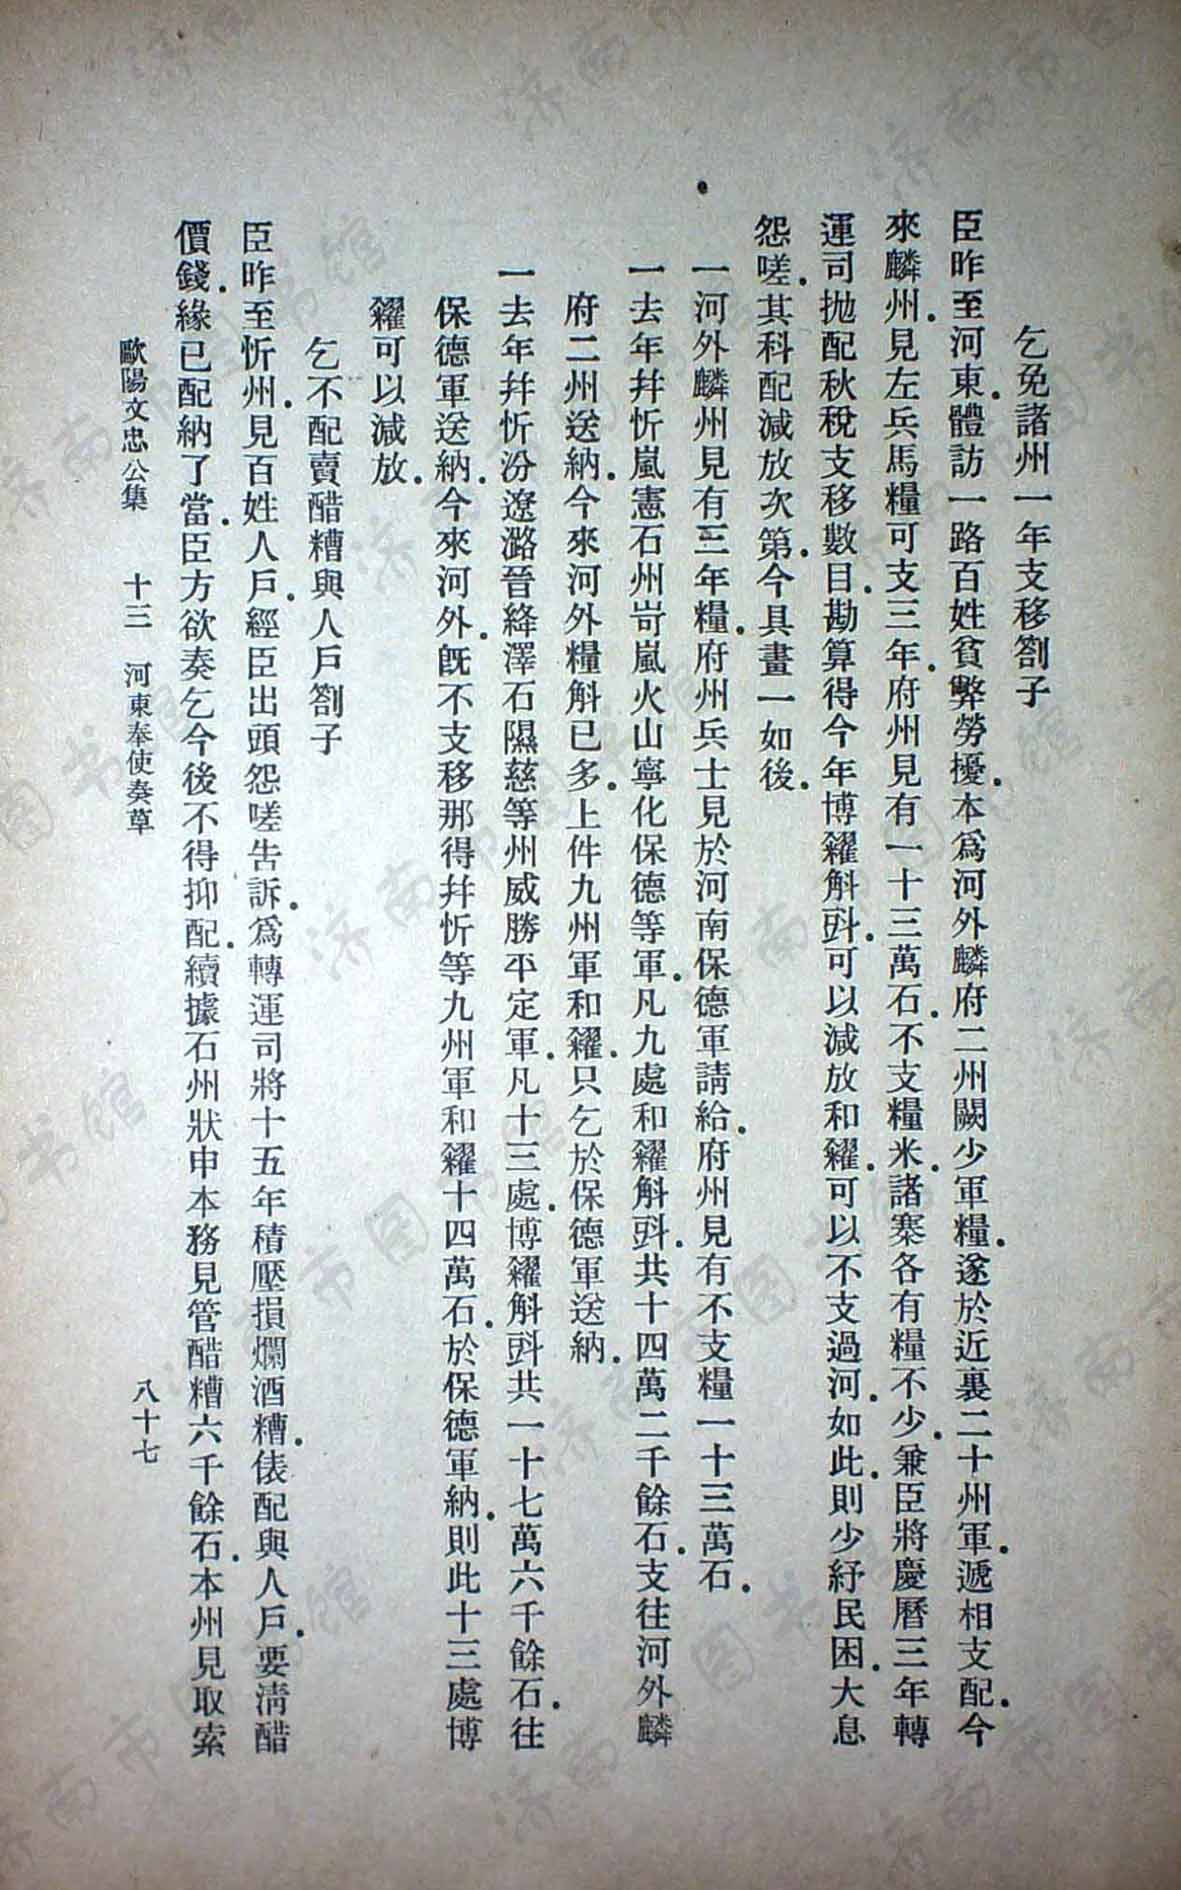 乞免諸州一年支移劄子
臣昨至河東體訪一路百姓貧弊勞擾.本爲河外麟府二州闕少軍糧.遂於近裏二十州軍.遞相支配.今
來麟州.見左兵馬糧可支三年.府州見有一十三萬石.不支糧米.諸寨各有糧不少.兼臣將慶曆三年轉
運司拋配秋稅支移數目.勘算得今年博糴斛㪷.可以減放和糴.可以不支過河.如此.則少紓民困.大息
怨嗟.其科配減放次第.今具畫一如後.
一河外麟州見有三年糧.府州兵士見於河南保德軍請給.府州見有不支糧一十三萬石.
一去年幷忻嵐憲石州岢嵐火山寧化保德等軍.凡九處和糴斛㪷.共十四萬二千餘石.支往河外麟
府二州送納.今來河外糧斛已多.上件九州軍和糴.只乞於保德軍送納.
一去年幷忻汾遼潞晉絳澤石隰慈等州威勝平定軍.凡十三處.博糴斛㪷共一十七萬六千餘石.往
保德軍送納.今來河外.旣不支移那得幷忻等九州軍和糴十四萬石.於保德軍納.則此十三處博
糴可以減放.
乞不配賣醋糟與人戶劄子
臣昨至忻州.見百姓人戶.經臣出頭怨嗟吿訴.爲轉運司將十五年積壓損爛酒糟.俵配與人戶.要淸醋
價錢.緣已配納了當.臣方欲奏乞今後不得抑配.續據石州狀申本務見管醋糟六千餘石.本州見取索
歐陽文忠公集 十三 河東奉使奏草 八十七
濟南市圖書館